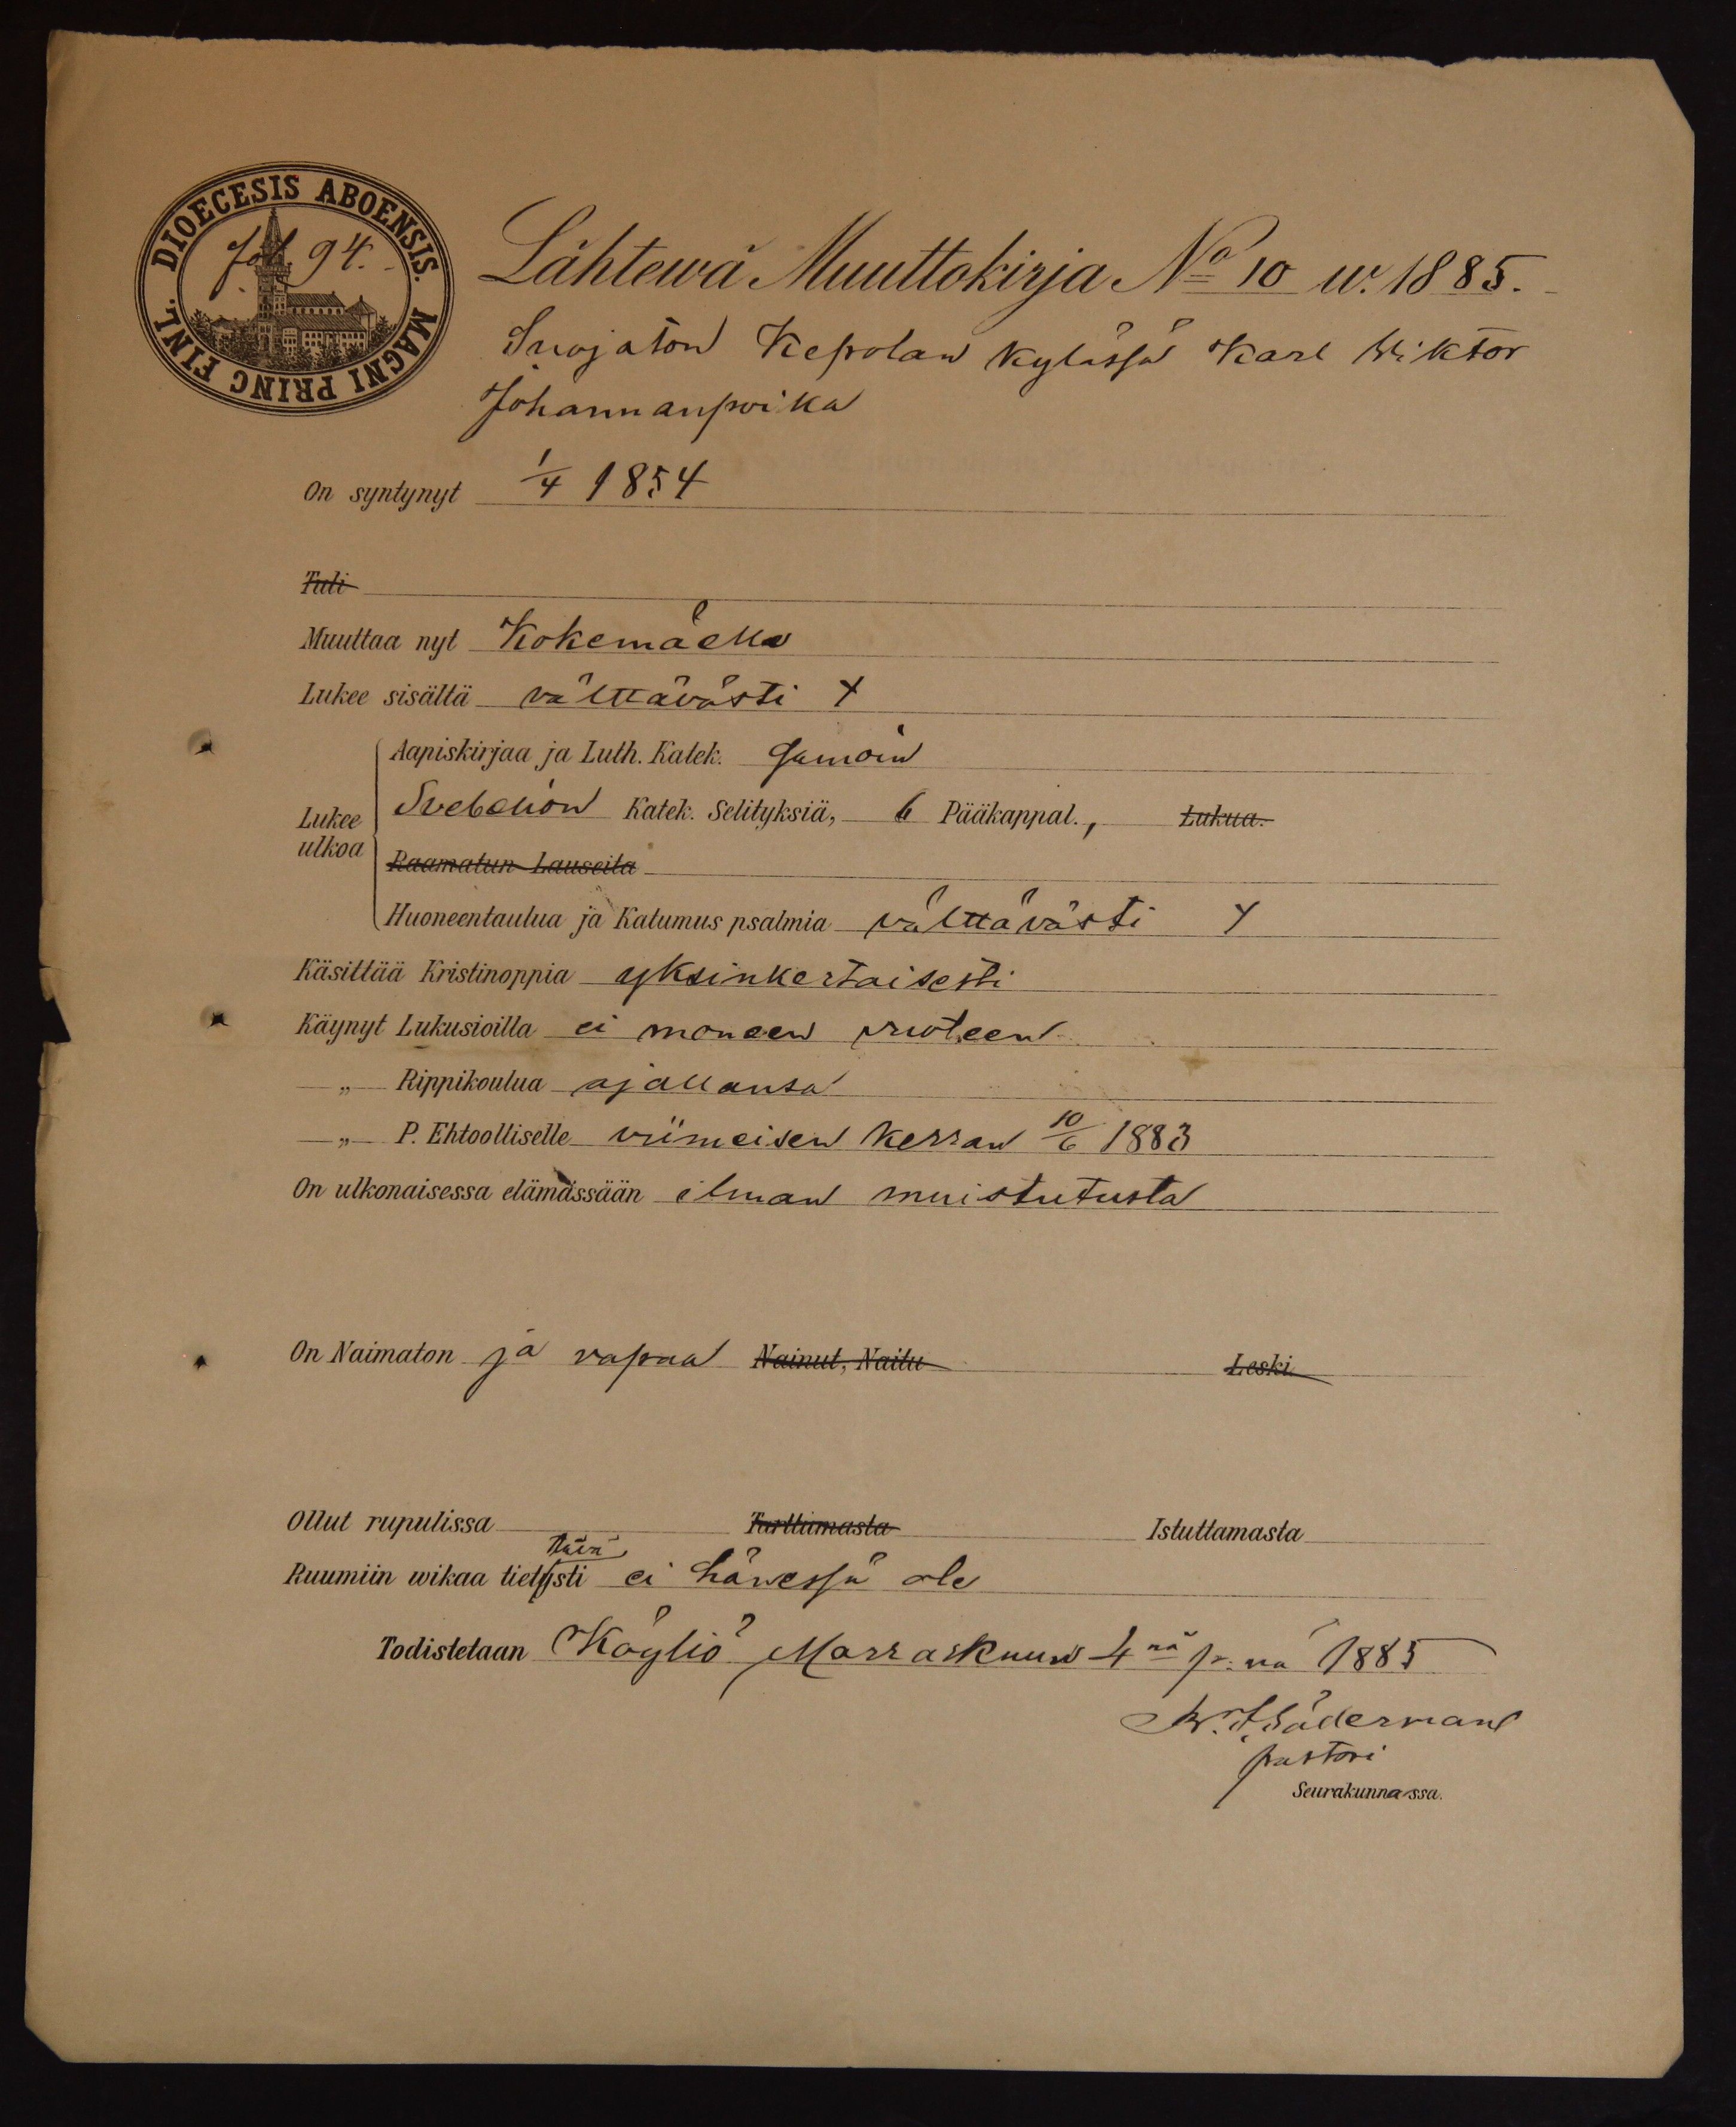 DIOECESIS ABOENSIS. MAGNI PRINC FINL.
fol. 94.
Lähtewä Muuttokirja No 10 w. 1885.
Suojaton Kepolan kylässä Karl Wiktor
Johannanpoika
On syntynyt 1/4 1854
Tuli
Muuttaa nyt Kokemäelle
Lukee sisältä välttävästi Y
Aapiskirjaa ja Luth. Katek. samoin
Lukee ulkoa
Svebelion Katek. Selityksiä, 6 Pääkappal., Lukua.
Raamatun Lauseita
Huoneentaulua ja Katumus psalmia välttävästi Y
Käsittää Kristinoppia yksinkertaisesti
Käynyt Lukusioilla ei moneen vuoteen
„ Rippikoulua ajallansa
„ P. Ehtoolliselle viimeisen kerran 10/6 1883
On ulkonaisessa elämässään ilman muistutusta
On Naimaton ja vapaa Nainut, Naitu Leski.
Ollut rupulissa Tarttumasta Istuttamasta
Ruumiin wikaa tiettävästi ei hänessä ole
Todistetaan Köyliö Marraskuun 4nä p:nä 1885
Söderman
pastori
Seurakunnassa.